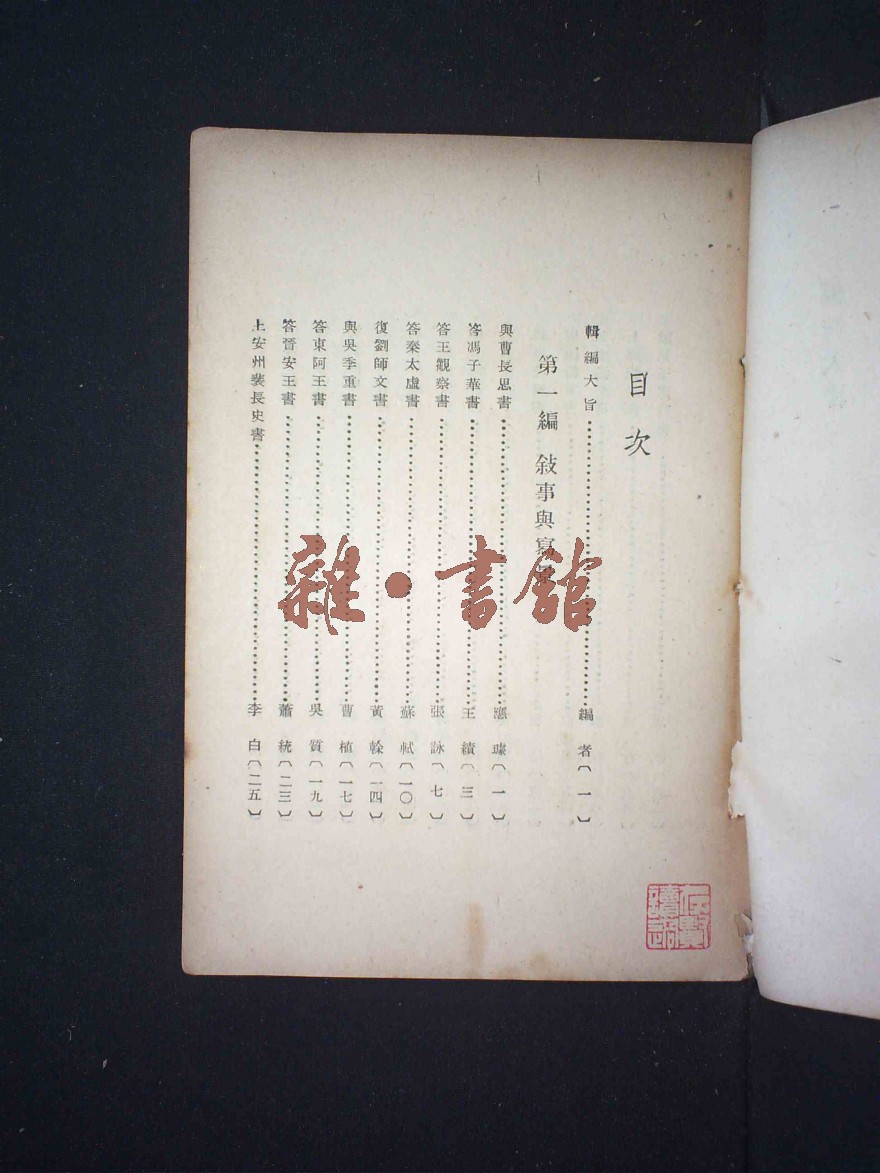 目次
輯編大旨……………………編者〔一〕
第一編 敍事與寫景
與曹長思書……………………應璩〔一〕
答馮子華書……………………王績〔三〕
答王觀察書……………………張詠〔七〕
答秦太虛書……………………蘇軾〔一〇〕
復劉師文書……………………黃榦〔一四〕
與吳季重書……………………曹植〔一七〕
答東阿王書……………………吳質〔一九〕
答晉安王書……………………蕭統〔二三〕
上安州裴長史書……………………李白〔二五〕
雜·書館